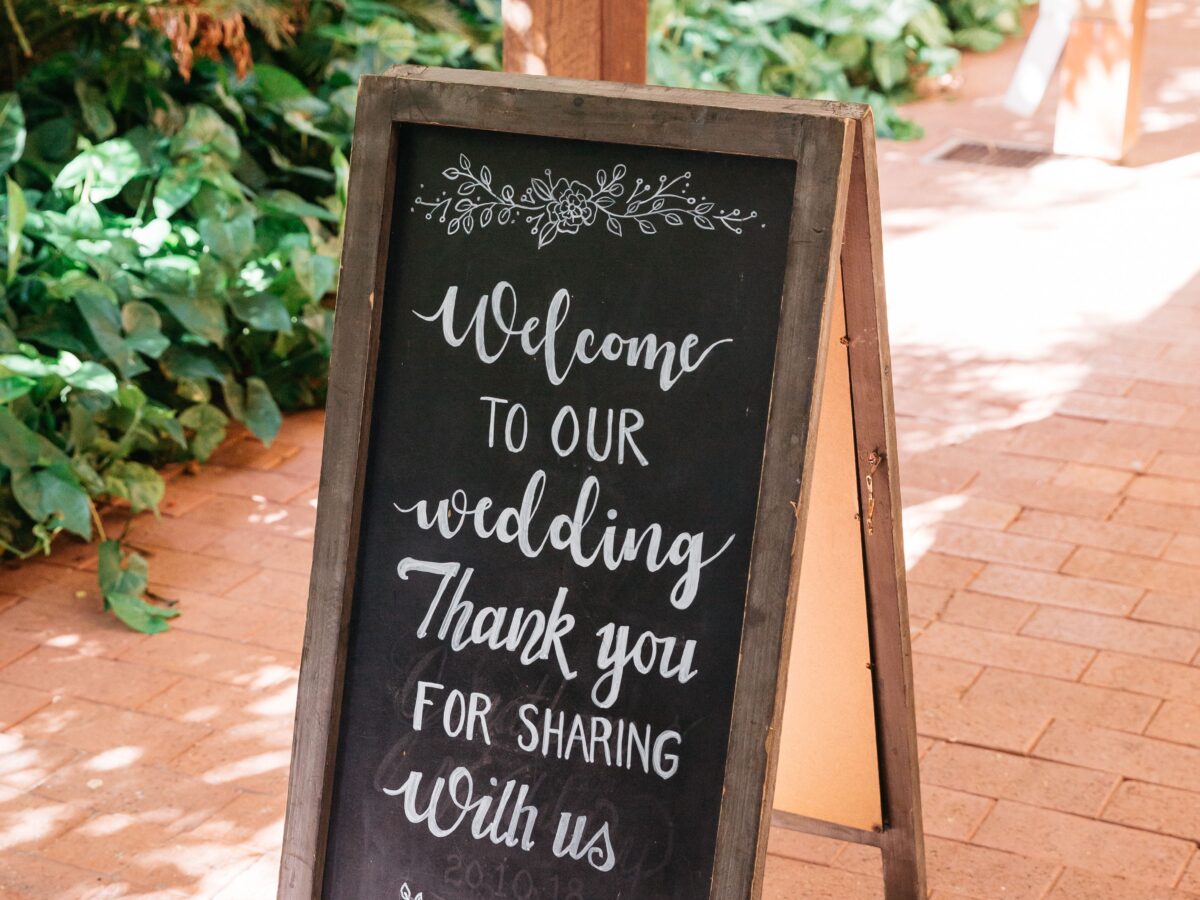 Welcome
TO OUR
wedding
Thank you
FOR SHARING
With us
20.10.18